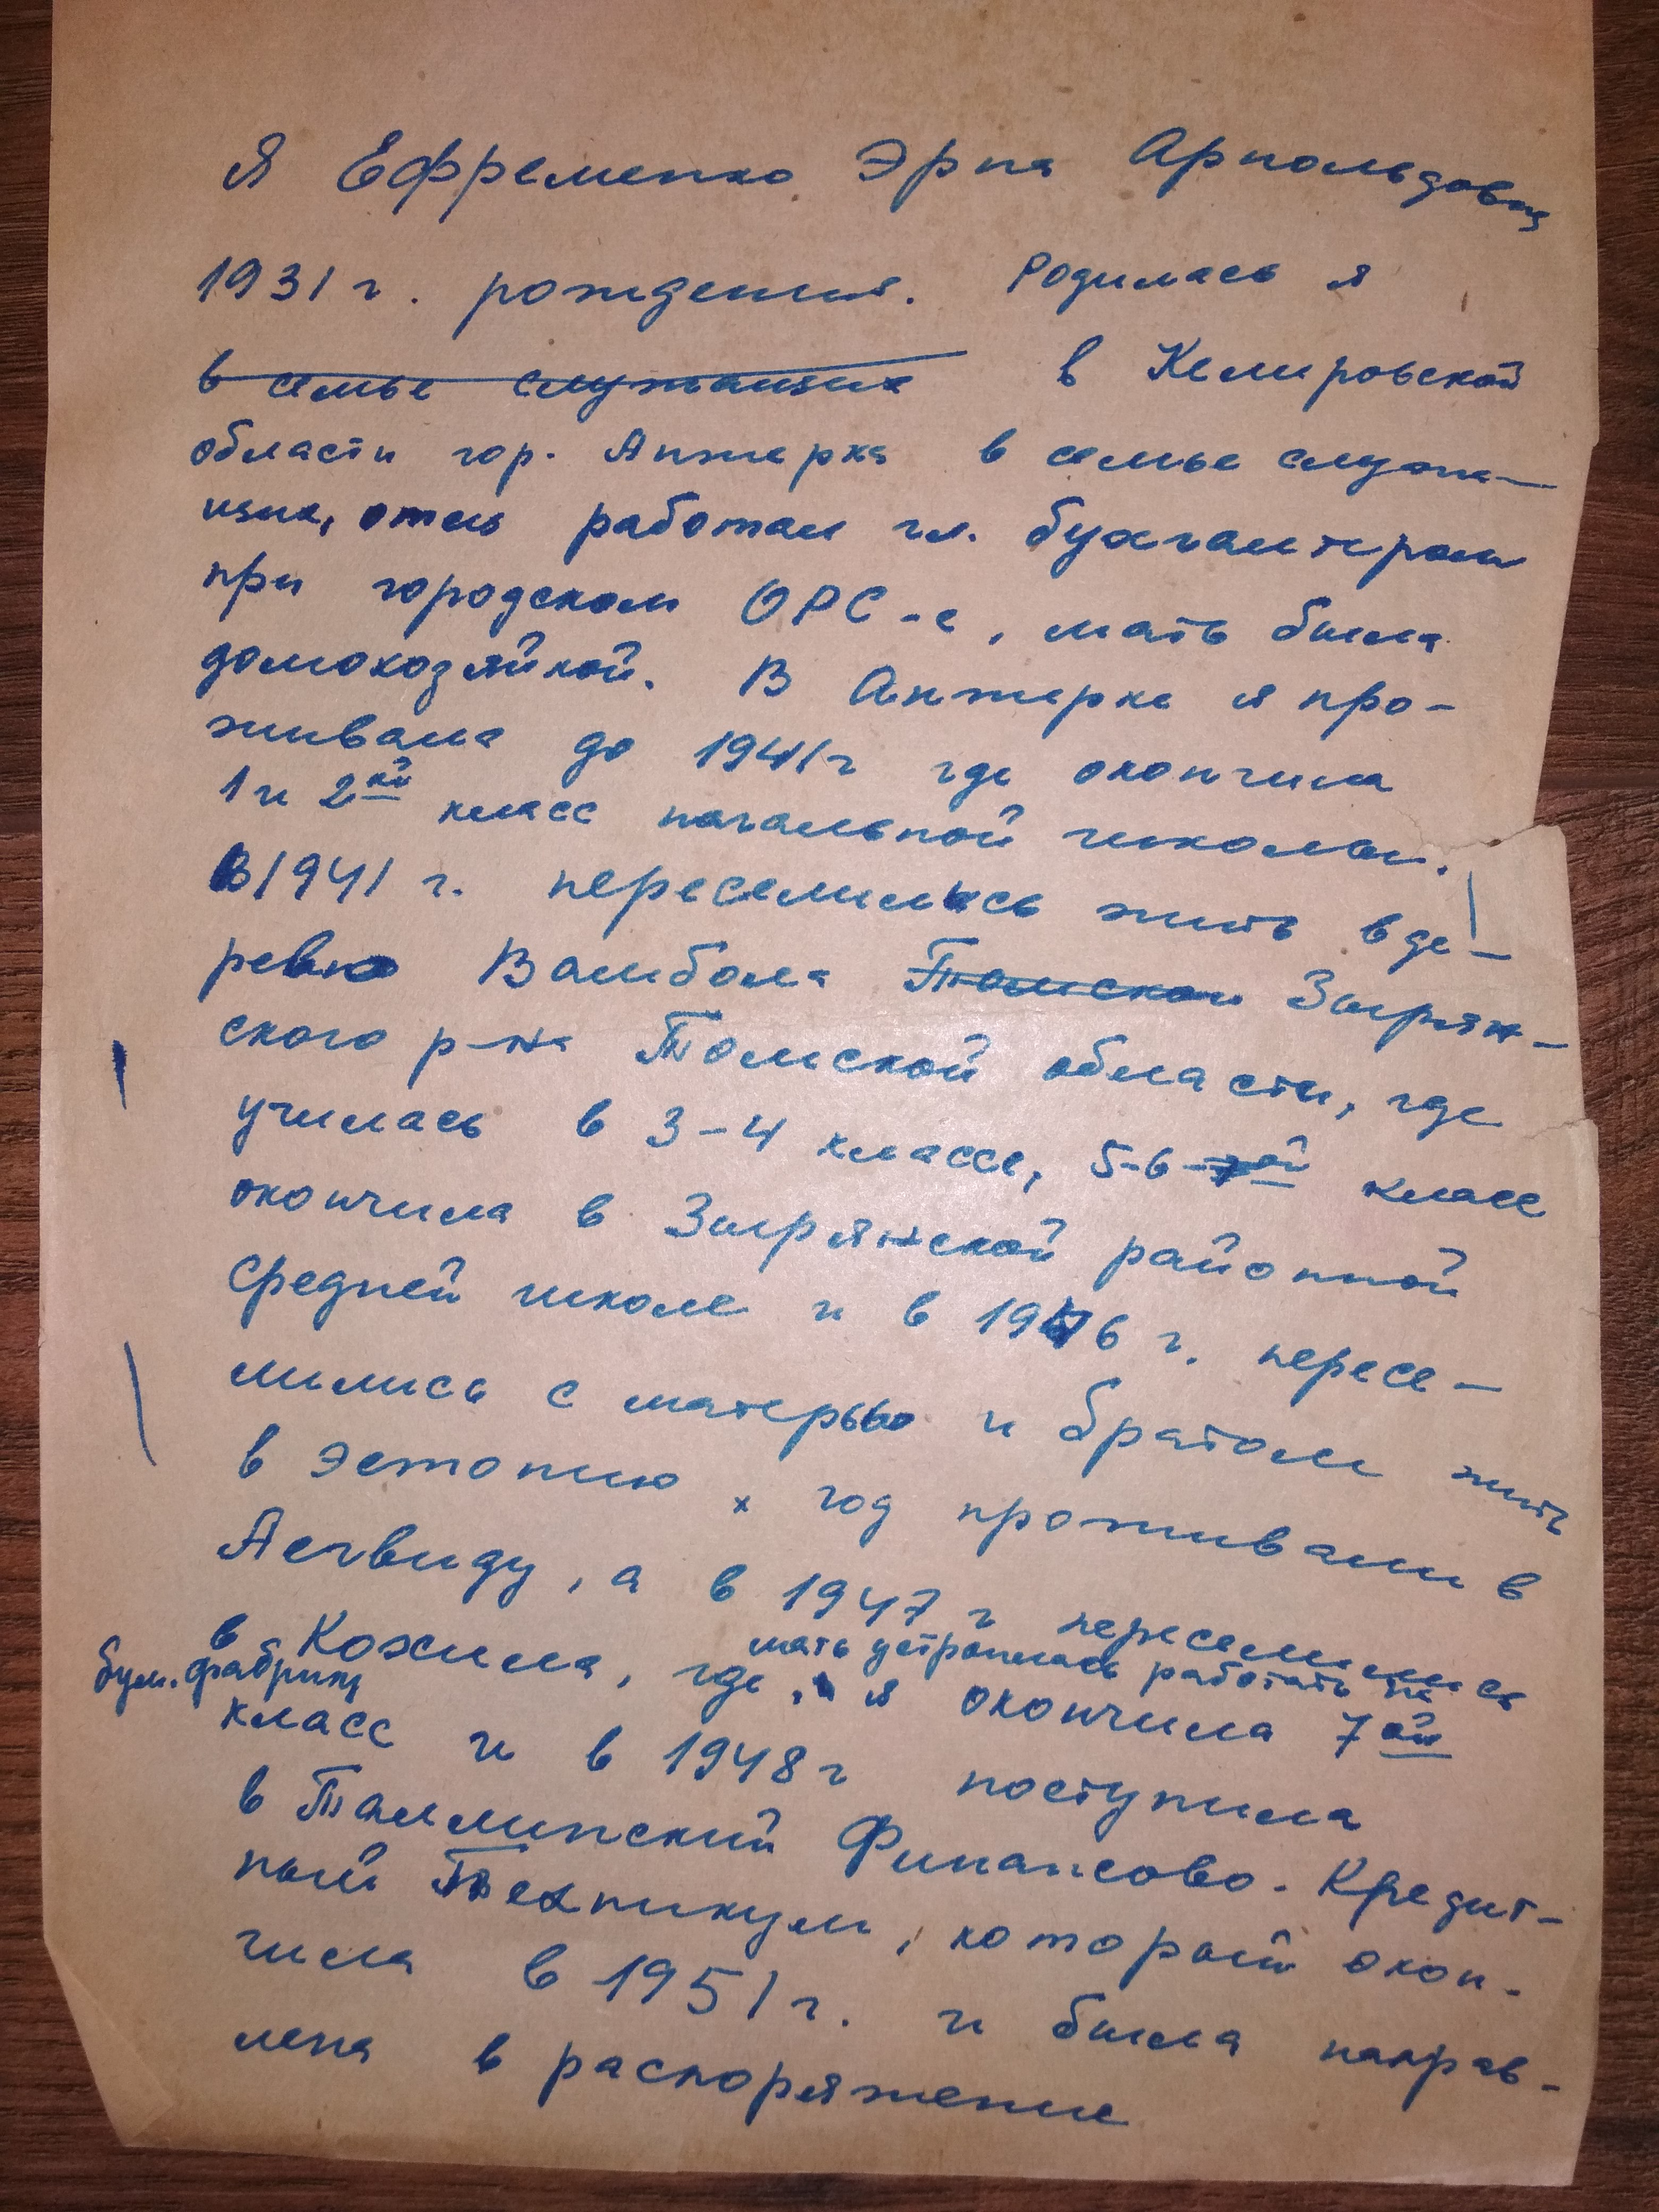 Я Ефременко Эрна Арнольдовна
1931 г. рождения. Родилась я
в семье служащих в Кемировской
области гор. Анжерка в семье служа-
щих, отец работал гл. бухгалтером
при городском ОРС-е, мать была
домохозяйкой. В Анжерке я про-
живала до 1941 г где окончила
1 и 2ой класс начальной школы.
В 1941 г. переселились жить в де-
ревню Вамбола Томской Зырян-
ского р-на Томской области, где
училась в 3-4 классе, 5-6-7ой класс
окончила в Зырянской районной
средней школе и в 1946 г. пересе-
лились с матерью и братом жить
в Эстонию, год проживали в
Аегвиду, а в 1947 г переселились
в Кохила, где мать устроилась работать на
бум. фабрику, я окончила 7ой
класс и в 1948 г поступила
в Таллинский Финансово-Кредит-
ный Техникум, который окон-
чила в 1951 г. и была направ-
лена в распоряжение